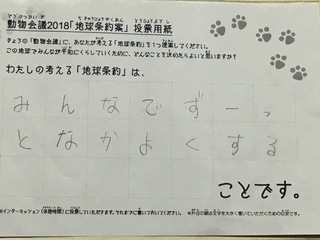 動物会議2018「地球条約案」投票用紙
きょうの「動物会議」に、あなたが考える「地球条約」を1つ提案してください。
この地球でみんなが平和にくらしていくために、どんなことを決めたらよいと思いますか?
わたしの考える「地球条約」は、
みんなでずーっ
となかよくする
ことです。
※インターミッション(休憩時間)に投票していただきます。それまでに書いておいてください。